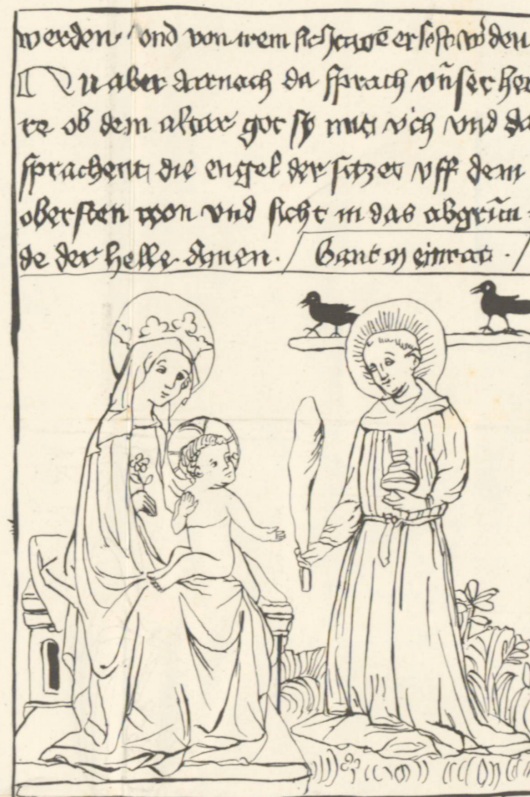 werden· ond von irem siechtagē erlost wͦden
Nu aber darnach da sprach vn̄ser her
re ob dem altar got sy mit v̍ch vnd da
sprachent die engel der sitzet vff dem
obersten tron vnd sicht in das abgrūn
de der helle Amen· Sant meinrat ·